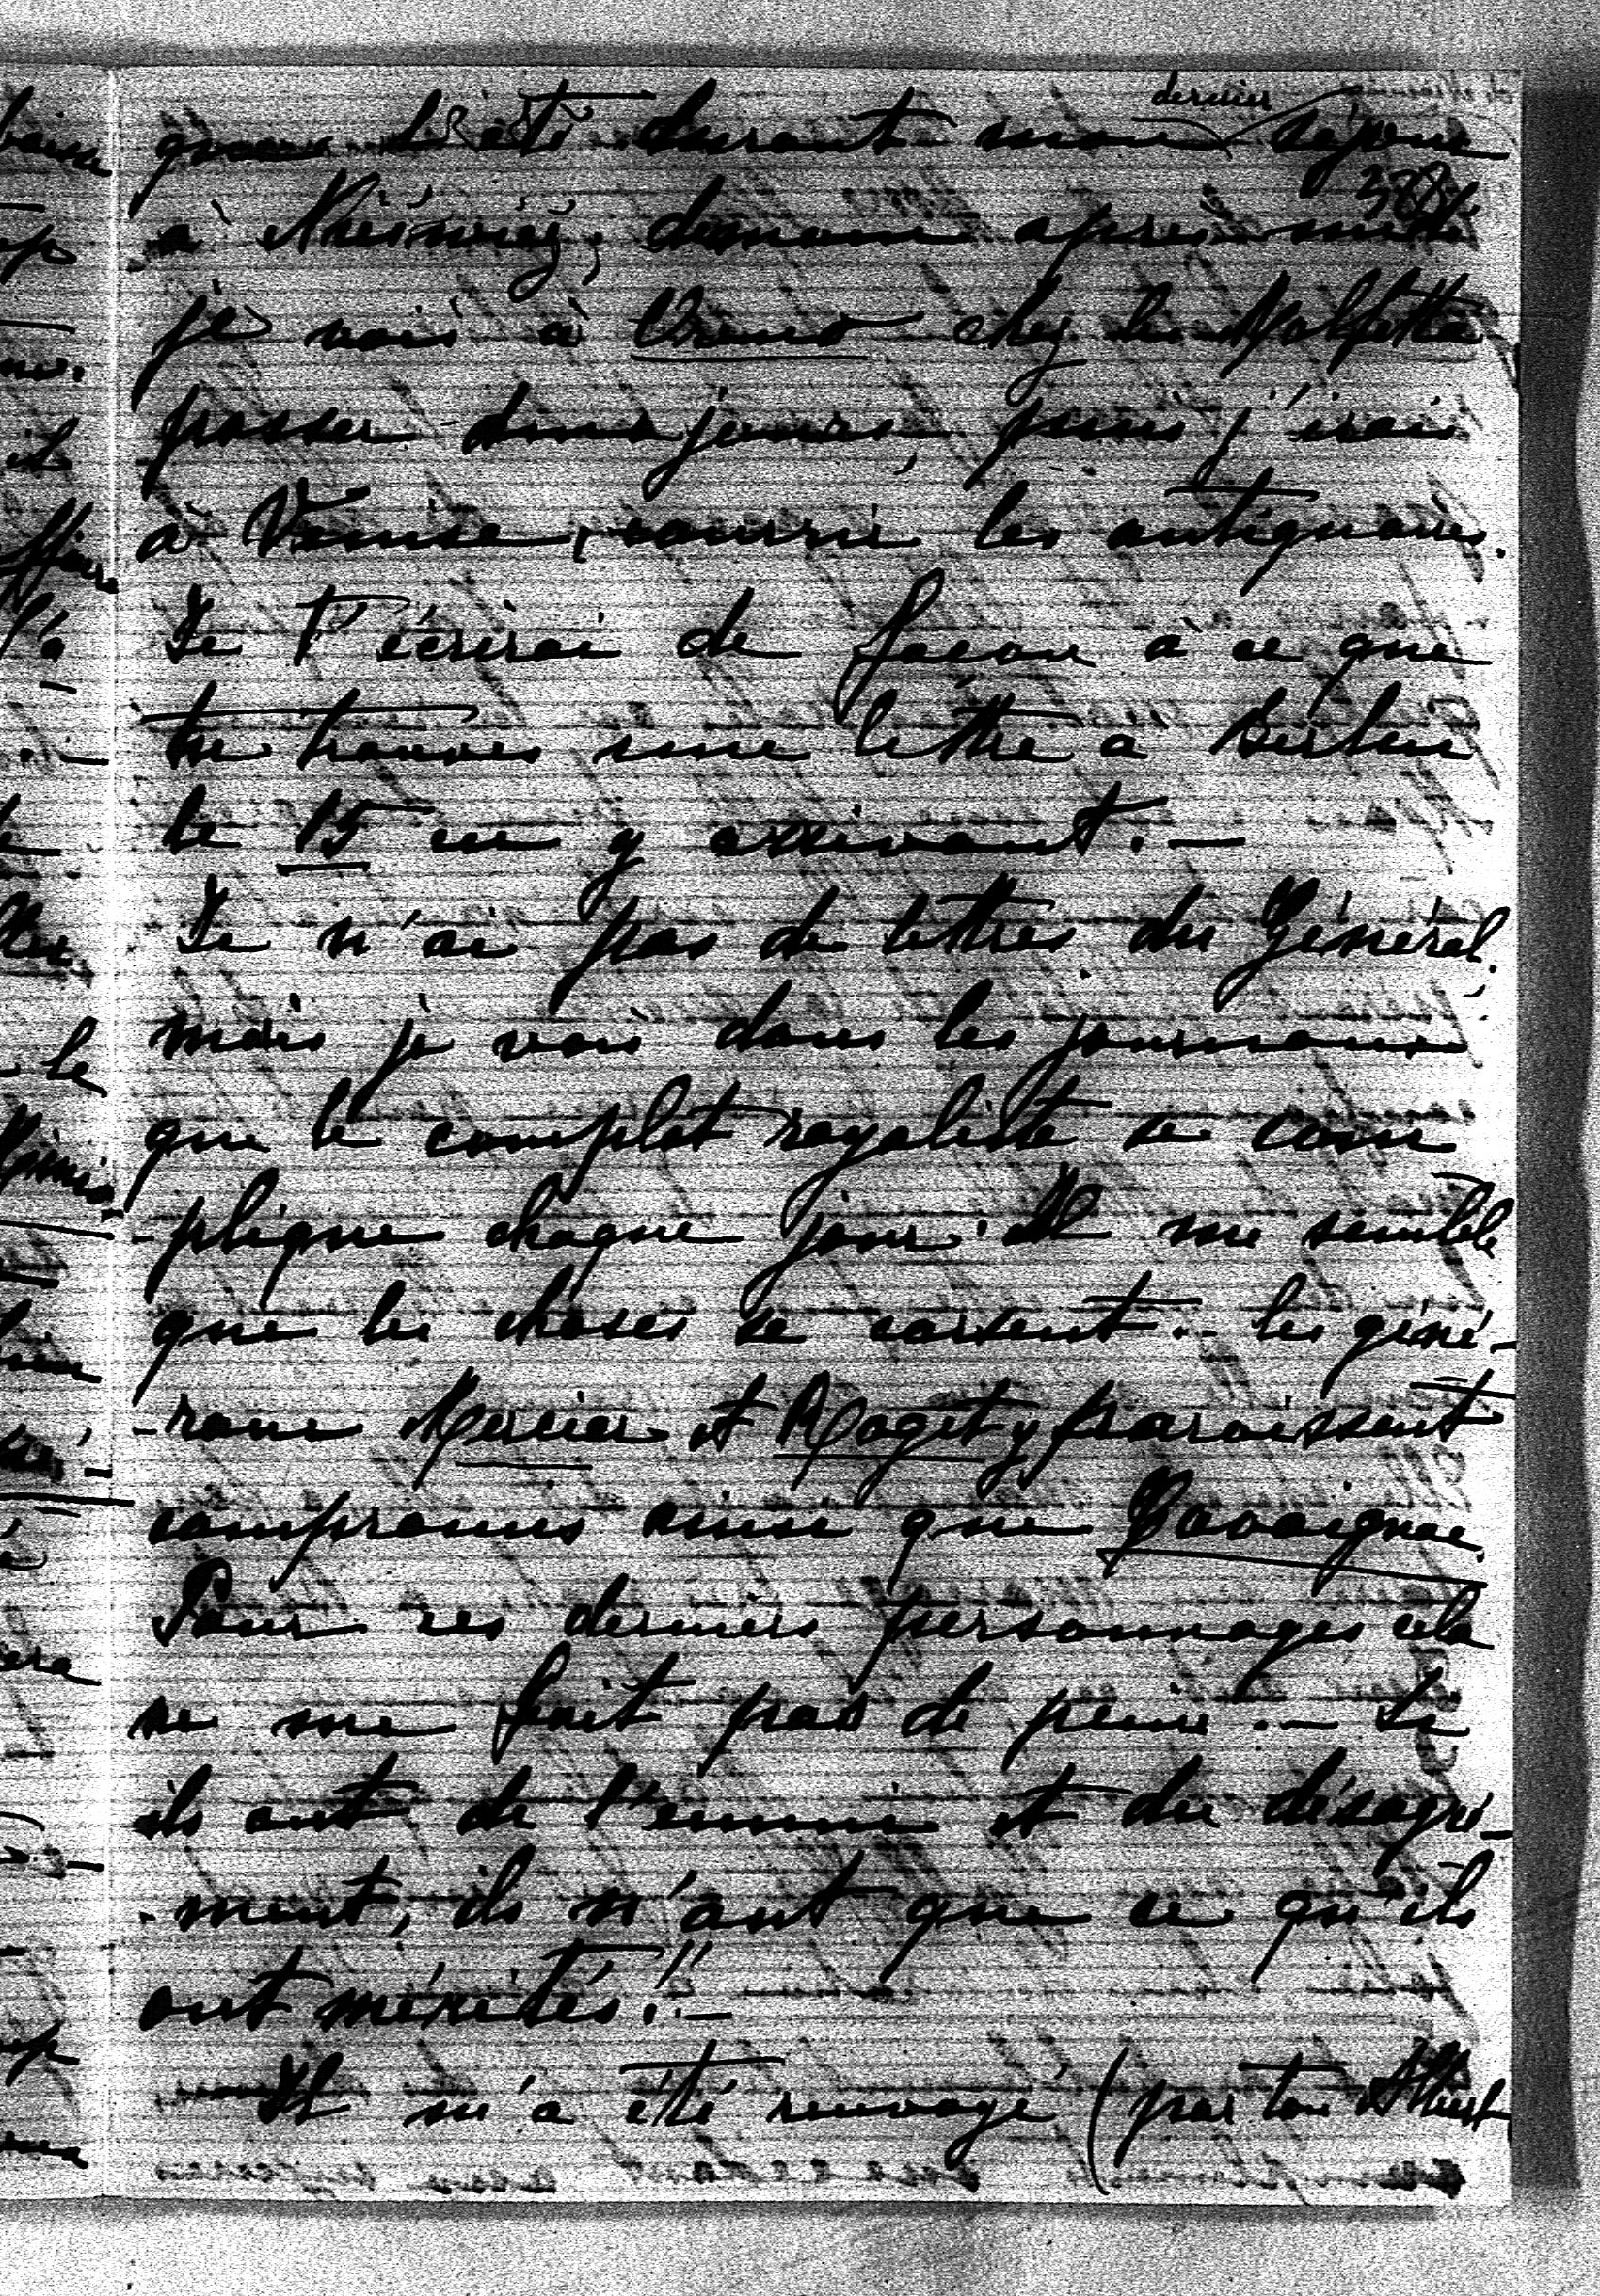 dernier
durant mon séjour
328
à Nieśwież, demain après midi
je vais à Vrana chez les Molfetta
passer deux jours puis j'irais
à Venise, courrir les antiquaires.
Je t'écrirai de façon à ce que
tu trouves une lettre à Berlin
le 15 en y arrivant. —
Je n'ai pas de lettres du Général,
mais je vois dans les journaux
que le complot royaliste se com
-plique chaque jour. Il me semble
que les choses se corsent.. les géné-
-raux Mercier et Roget y paraissent
compromis ainsi que Cavaignac.
Pour ces derniers personnages cela
ne me fait pas de peine. — Si
ils ont de l'ennui et du désagré-
-ment, ils n'ont que ce qu'ils
ont mérités!! —
Il m'a été renvoyé (par ton